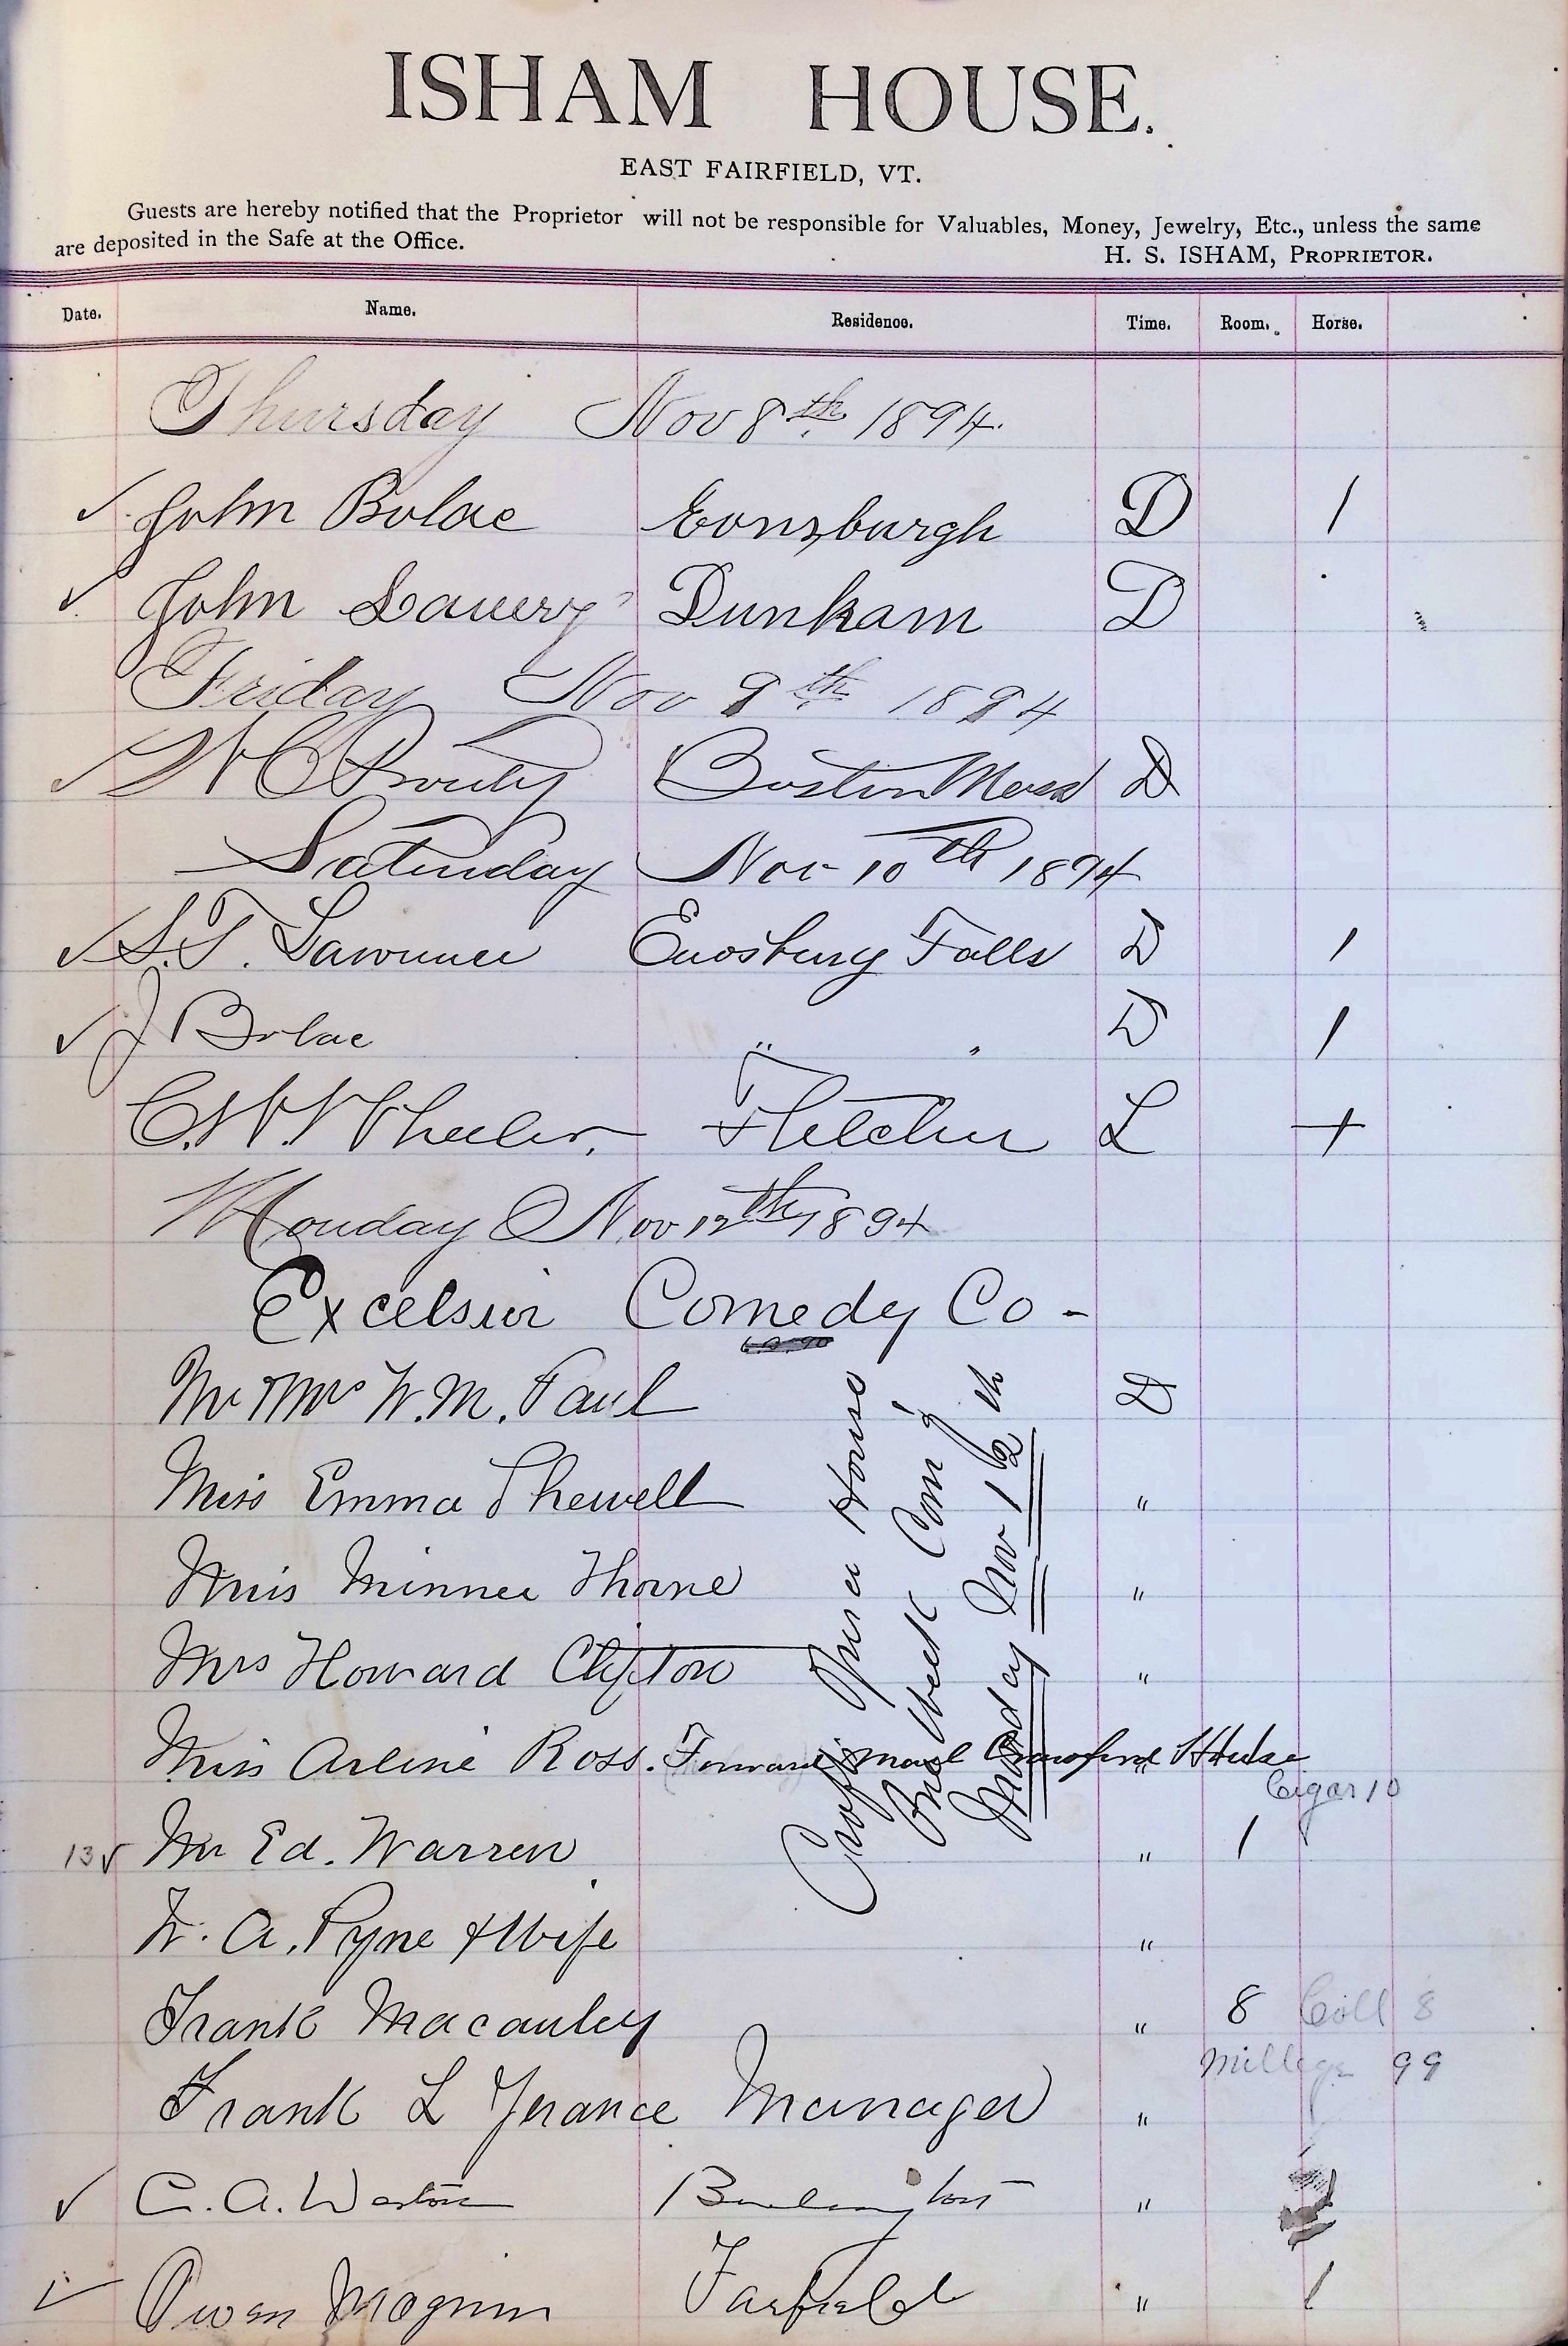 ISHAM HOUSE.
EAST FAIRFIELD, VT.
Guests are hereby notified that the Proprietor will not be responsible for Valuables, Money, Jewelry, Etc., unless the same
are deposited in the Safe at the Office.
H. S. ISHAM, PROPRIETOR.
Date. Name. Residence. Time. Room. Horse.
Thursday Nov 8th 1894.
✓ John Bolac Eonsburgh D 1
✓ John Lavery Dunham D
Friday Nov 9th 1894
✓ W C Prouty Boston Mass D
Saturday Nov 10th 1894
✓ S. T. Lawrence Enosburg Falls D 1
✓ J Bolac " " D 1
C. W. Wheeler. Fletcher L +
Monday Nov 12th 1894
Excelsior Comedy Co -
Mr & Mrs W. M. Paul D
Miss Emma Shewell "
Miss Minnee Thorne "
Mrs Howard Clifton "
Miss Arline Ross. Forward mail Crawford House "
Cigar 10
13 ✓ Mr Ed. Warren " 1
W. A. Pyne & Wife "
Frank Macauley " 8 8
99
Frank L Manager "
✓ C. A. Weston Burlington "
✓ Owen Magnin Farfield " 1
Opera House
One Week Com'g
Monday Nov 12th